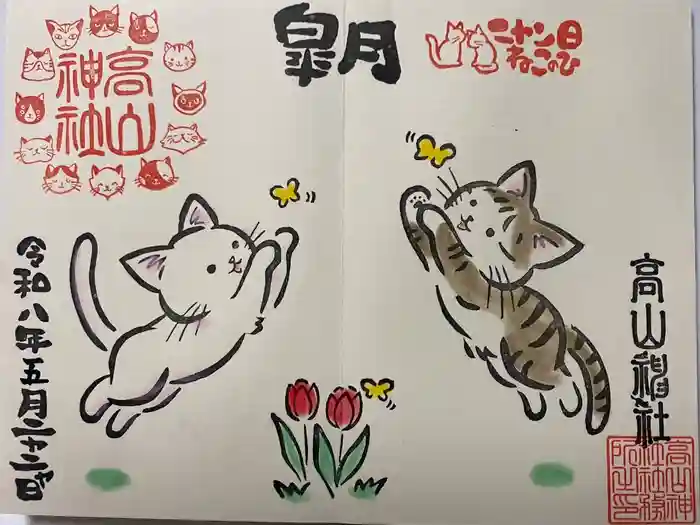 高山
神社
皐月
ニャン日
ねこのひ
高山神社
高山神
社社務
所之印
令和八年五月二十二日